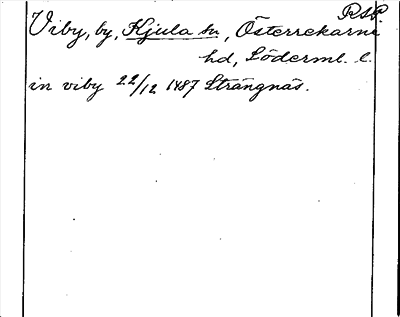 RSP
Viby, by, Kjula sn, Österrekarne
hd, Söderml. l.
in viby 22/12 1487 Strängnäs.